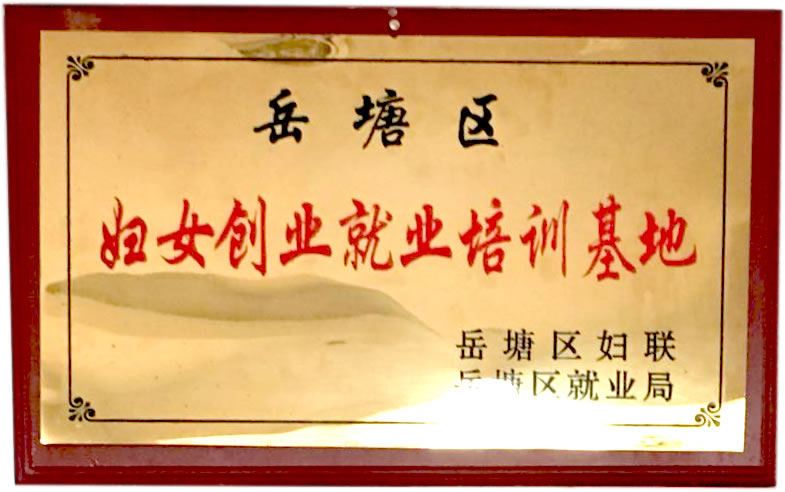 岳塘区
妇女创业就业培训基地
岳塘区妇联
岳塘区就业局